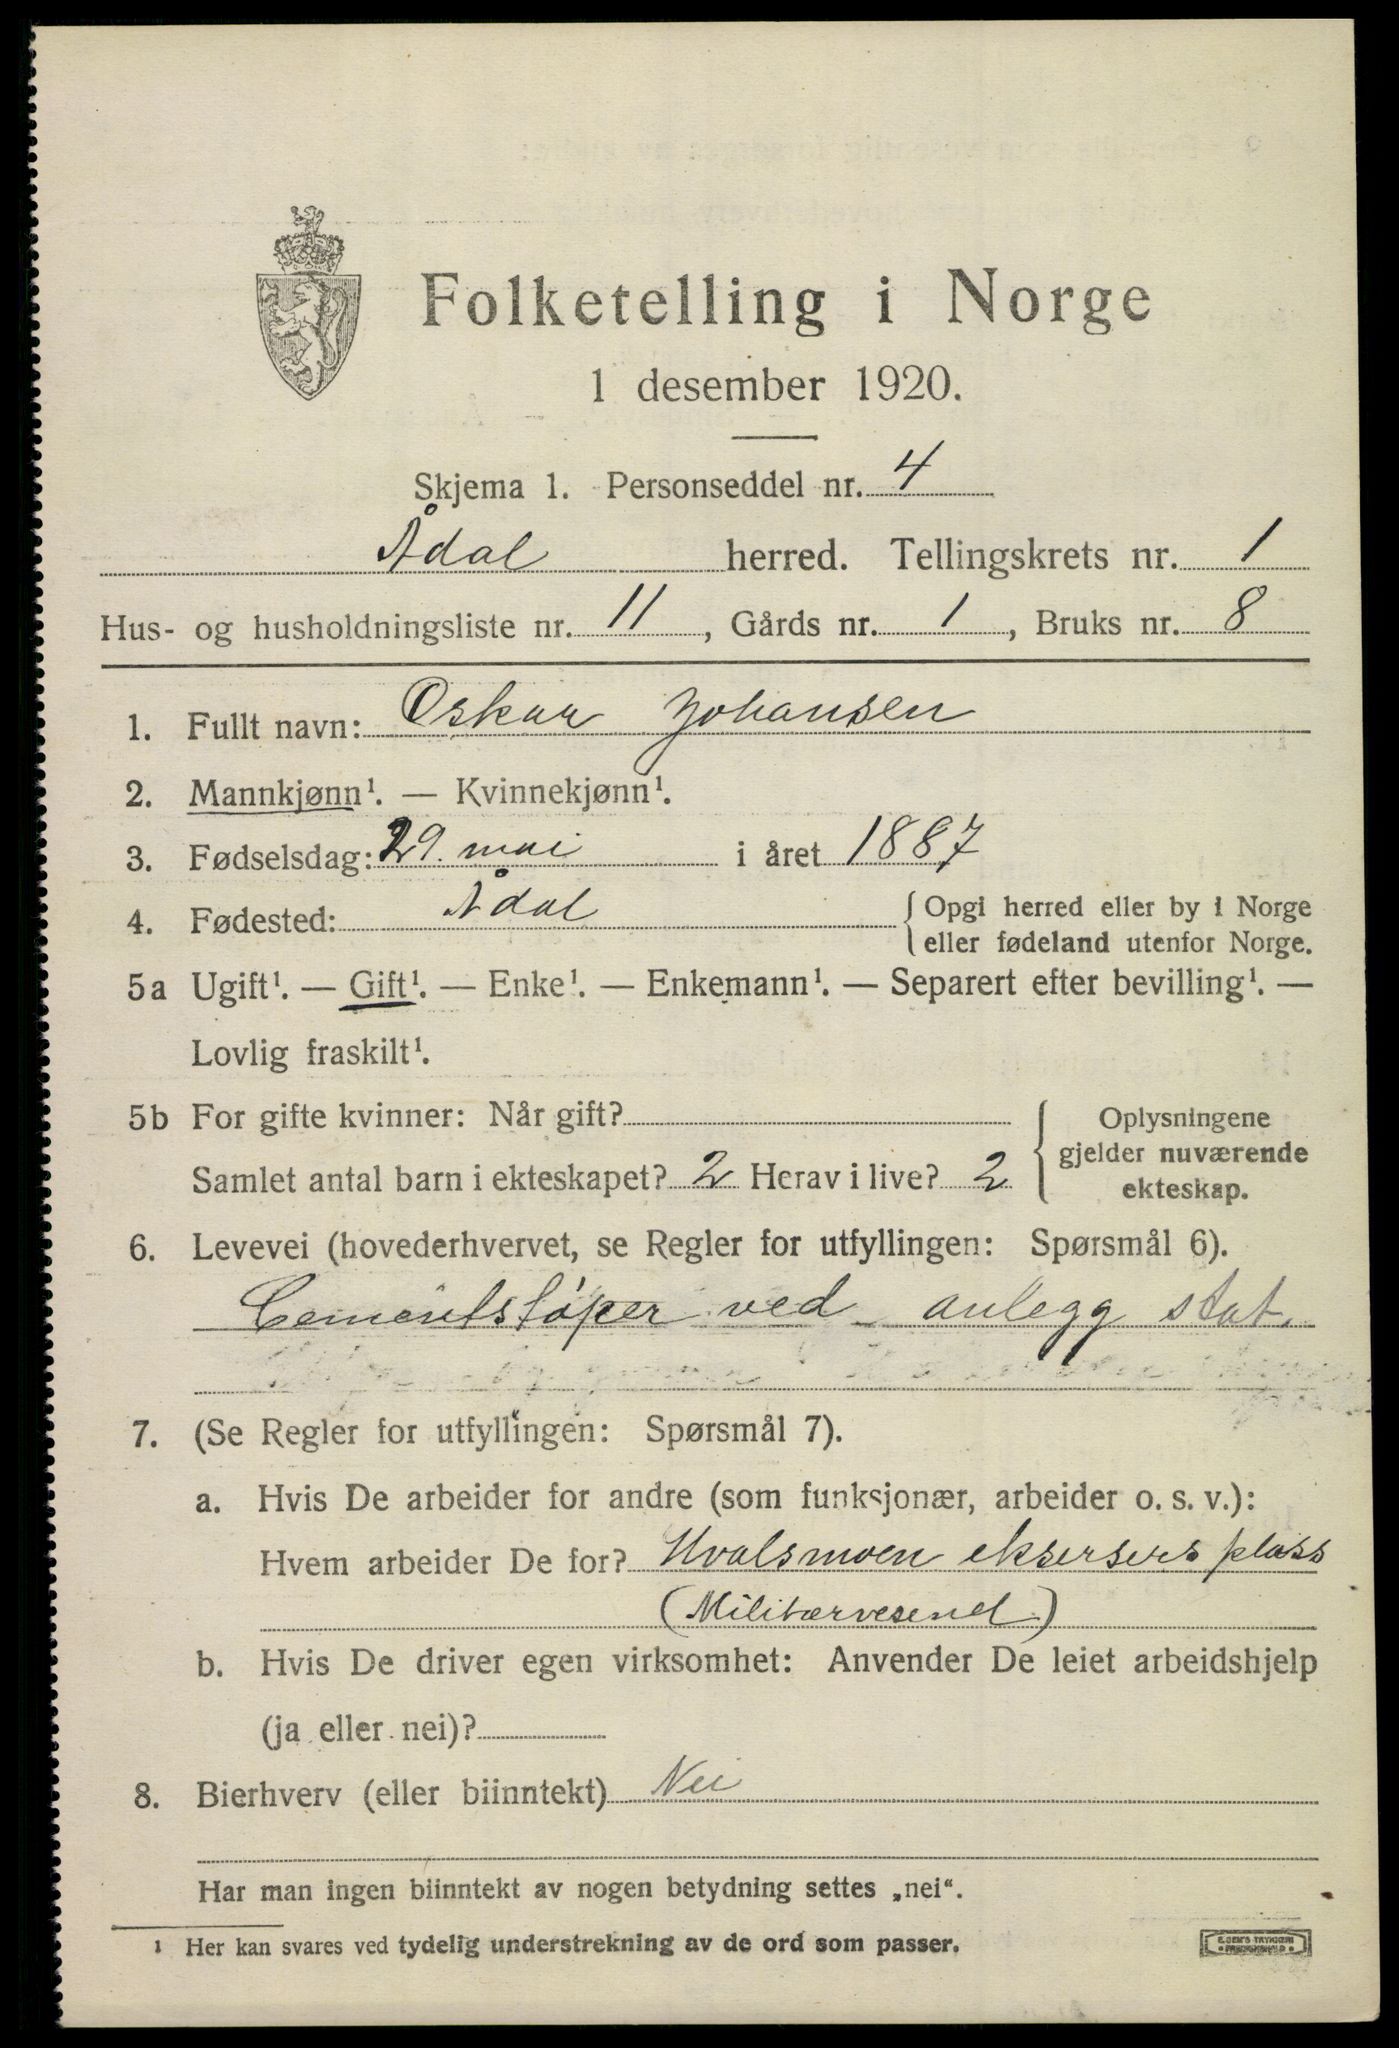 Folketelling i Norge
1 desember 1920.
Skjema 1. Personseddel nr. 4
Ådal herred. Tellingskrets nr. 1
Hus- og husholdningsliste nr. 11, Gårds nr. 1, Bruks nr. 8
1. Fullt navn: Oskar Johansen
2. Mannkjønn¹. — Kvinnekjønn¹.
3. Fødselsdag: 29. mai i året 1887
4. Fødested: Ådal { Opgi herred eller by i Norge
eller fødeland utenfor Norge.
5a Ugift¹. — Gift¹. — Enke¹. — Enkemann¹. — Separert efter bevilling¹. —
Lovlig fraskilt¹.
5b For gifte kvinner: Når gift?
Samlet antal barn i ekteskapet? 2 Herav i live? 2
{ Oplysningene
gjelder nuværende
ekteskap.
6. Levevei (hovederhvervet, se Regler for utfyllingen: Spørsmål 6).
Cementstøper ved anlegg stat.
7. (Se Regler for utfyllingen: Spørsmål 7).
a. Hvis De arbeider for andre (som funksjonær, arbeider o. s. v.):
Hvem arbeider De for? Hvalsmoen eksersers plass
(Militærvesend)
b. Hvis De driver egen virksomhet: Anvender De leiet arbeidshjelp
(ja eller nei)?
8. Bierhverv (eller biinntekt) Nei
Har man ingen biinntekt av nogen betydning settes „nei“.
¹ Her kan svares ved tydelig understrekning av de ord som passer.